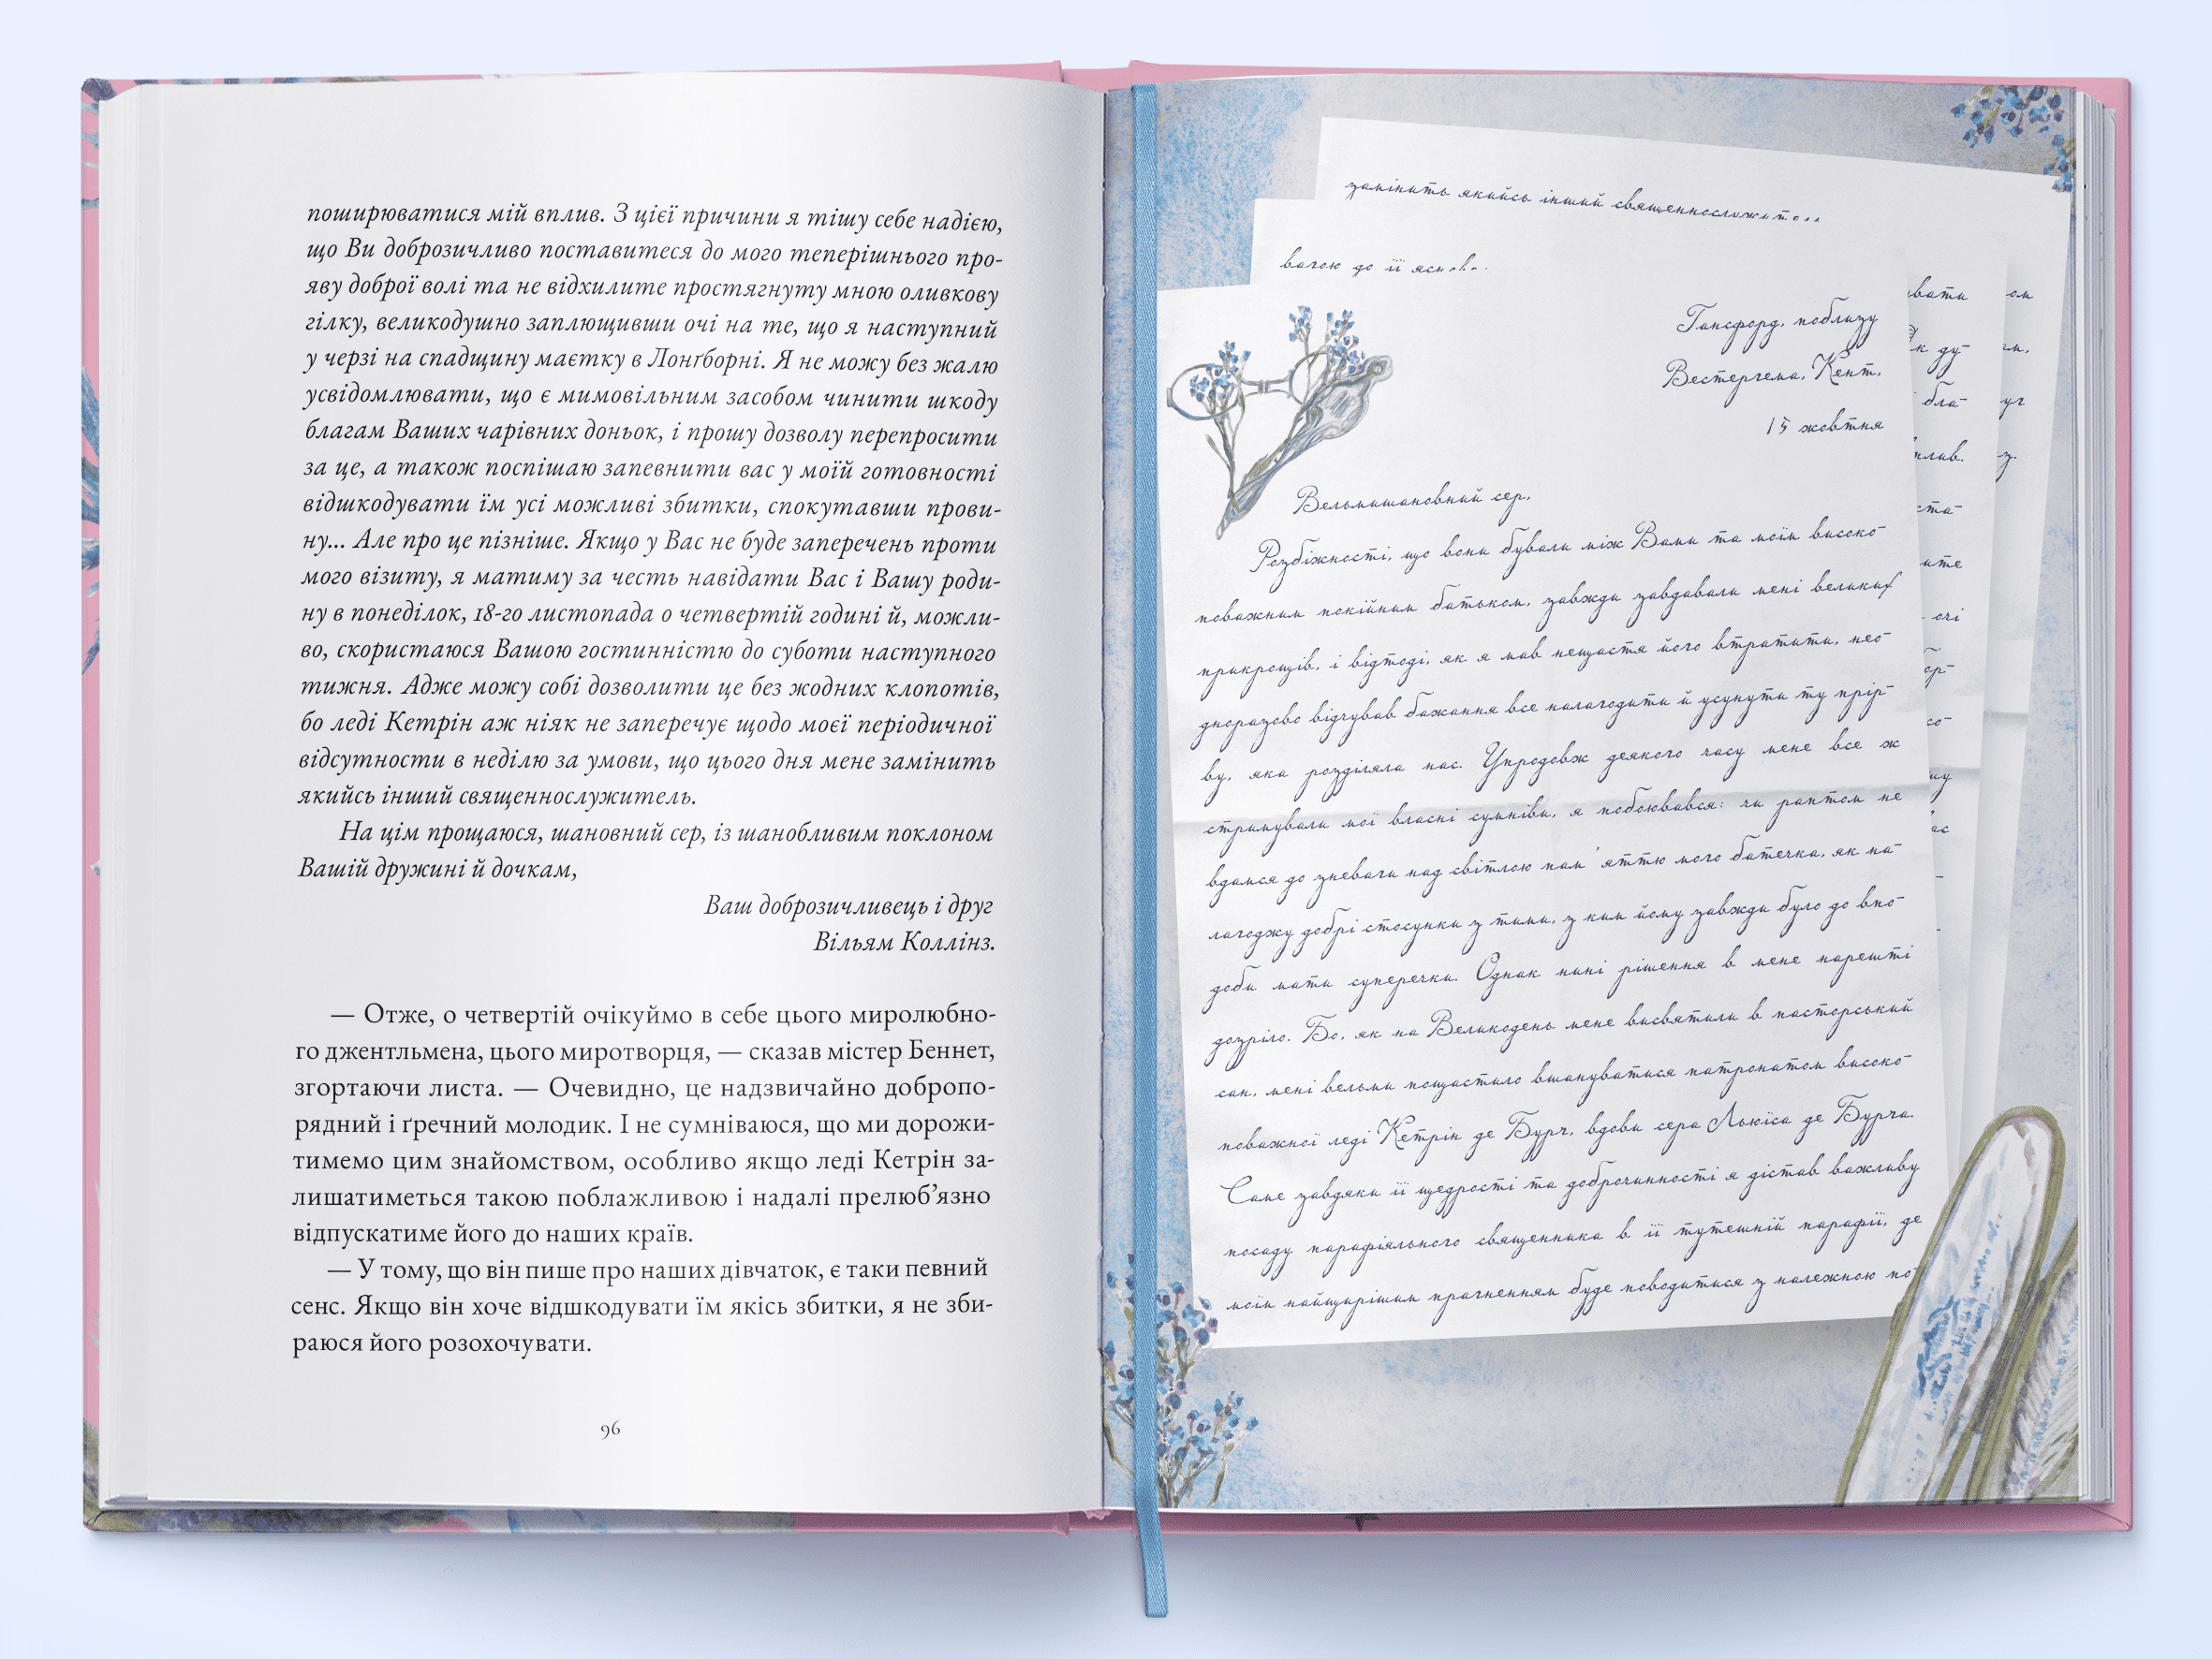 поширюватися мій вплив. З цієї причини я тішу себе надією,
що Ви доброзичливо поставитеся до мого теперішнього про-
яву доброї волі та не відхилите простягнуту мною оливкову
гілку, великодушно заплющивши очі на те, що я наступний
у черзі на спадщину маєтку в Лонґборні. Я не можу без жалю
усвідомлювати, що є мимовільним засобом чинити шкоду
благам Ваших чарівних доньок, і прошу дозволу перепросити
за це, а також поспішаю запевнити вас у моїй готовності
відшкодувати їм усі можливі збитки, спокутавши прови-
ну... Але про це пізніше. Якщо у Вас не буде заперечень проти
мого візиту, я матиму за честь навідати Вас і Вашу роди-
ну в понеділок, 18-го листопада о четвертій годині й, можли-
во, скористаюся Вашою гостинністю до суботи наступного
тижня. Адже можу собі дозволити це без жодних клопотів,
бо леді Кетрін аж ніяк не заперечує щодо моєї періодичної
відсутности в неділю за умови, що цього дня мене замінить
якийсь інший священнослужитель.
На цім прощаюся, шановний сер, із шанобливим поклоном
Вашій дружині й дочкам,
Ваш доброзичливець і друг
Вільям Коллінз.
— Отже, о четвертій очікуймо в себе цього миролюбно-
го джентльмена, цього миротворця, — сказав містер Беннет,
згортаючи листа. — Очевидно, це надзвичайно добропо-
рядний і ґречний молодик. І не сумніваюся, що ми дорожи-
тимемо цим знайомством, особливо якщо леді Кетрін за-
лишатиметься такою поблажливою і надалі прелюб’язно
відпускатиме його до наших країв.
— У тому, що він пише про наших дівчаток, є таки певний
сенс. Якщо він хоче відшкодувати їм якісь збитки, я не зби-
раюся його розохочувати.
96
замінить якийсь інший священнослужит...
вагою до її
Гансфорд, поблизу
Вестергема, Кент,
15 жовтня
Вельмишановний сер,
Розбіжності, що вони бували між Вами та моїм високо-
поважним покійним батьком, завжди завдавали мені великих
прикрощів, і відтоді, як я мав нещастя його втратити, нео-
дноразово відчував бажання все налагодити й усунути ту прір-
ву, яка розділяла нас. Упродовж деякого часу мене все ж
стримували мої власні сумніви, я побоювався: чи раптом не
вдамся до зневаги над світлою пам'яттю мого батечка, як на-
лагоджу добрі стосунки з тими, з ким йому завжди було до впо-
доби мати суперечки. Однак нині рішення в мене нарешті
дозріло. Бо, як на Великодень мене висвятили в пасторський
сан, мені вельми пощастило вшануватися патронатом високо-
поважної леді Кетрін де Бурч, вдови сера Льюїса де Бурча.
Саме завдяки її щедрості та доброчинності я дістав важливу
посаду парафіяльного священника в її тутешній парафії, де
моїм найщирішим прагненням буде поводитися з належною по-